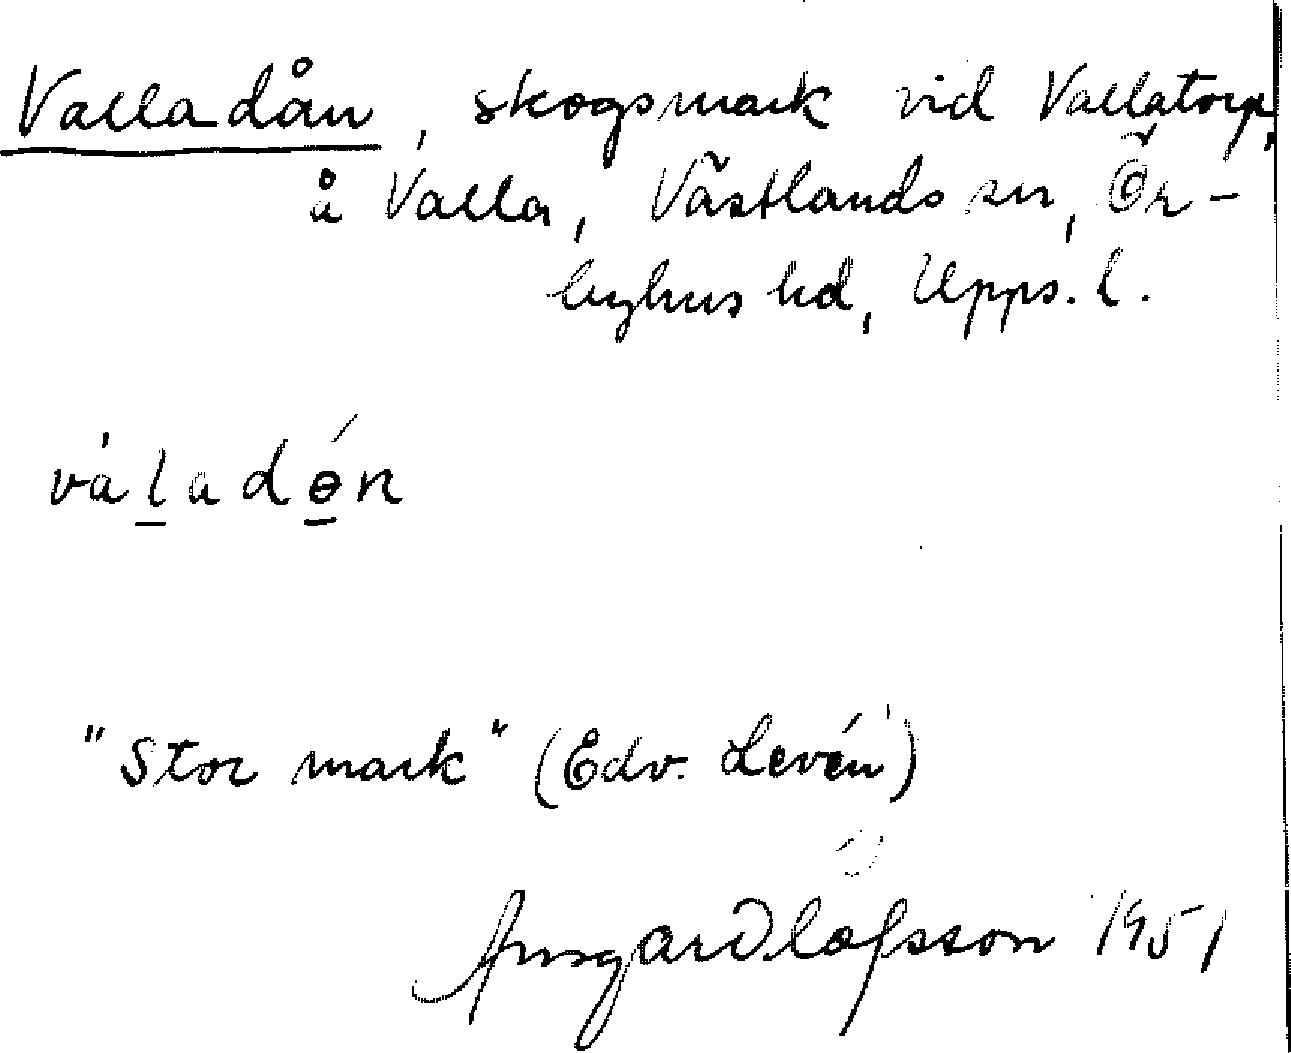 Valladån, skogsmark vid Vallatorp,
å Valla, Västlands sn, Ör-
byhus hd, Upps. l.
vàladɵ́n
"Stor mark" (Edv. Levén)
Ansgar Olofsson 1951